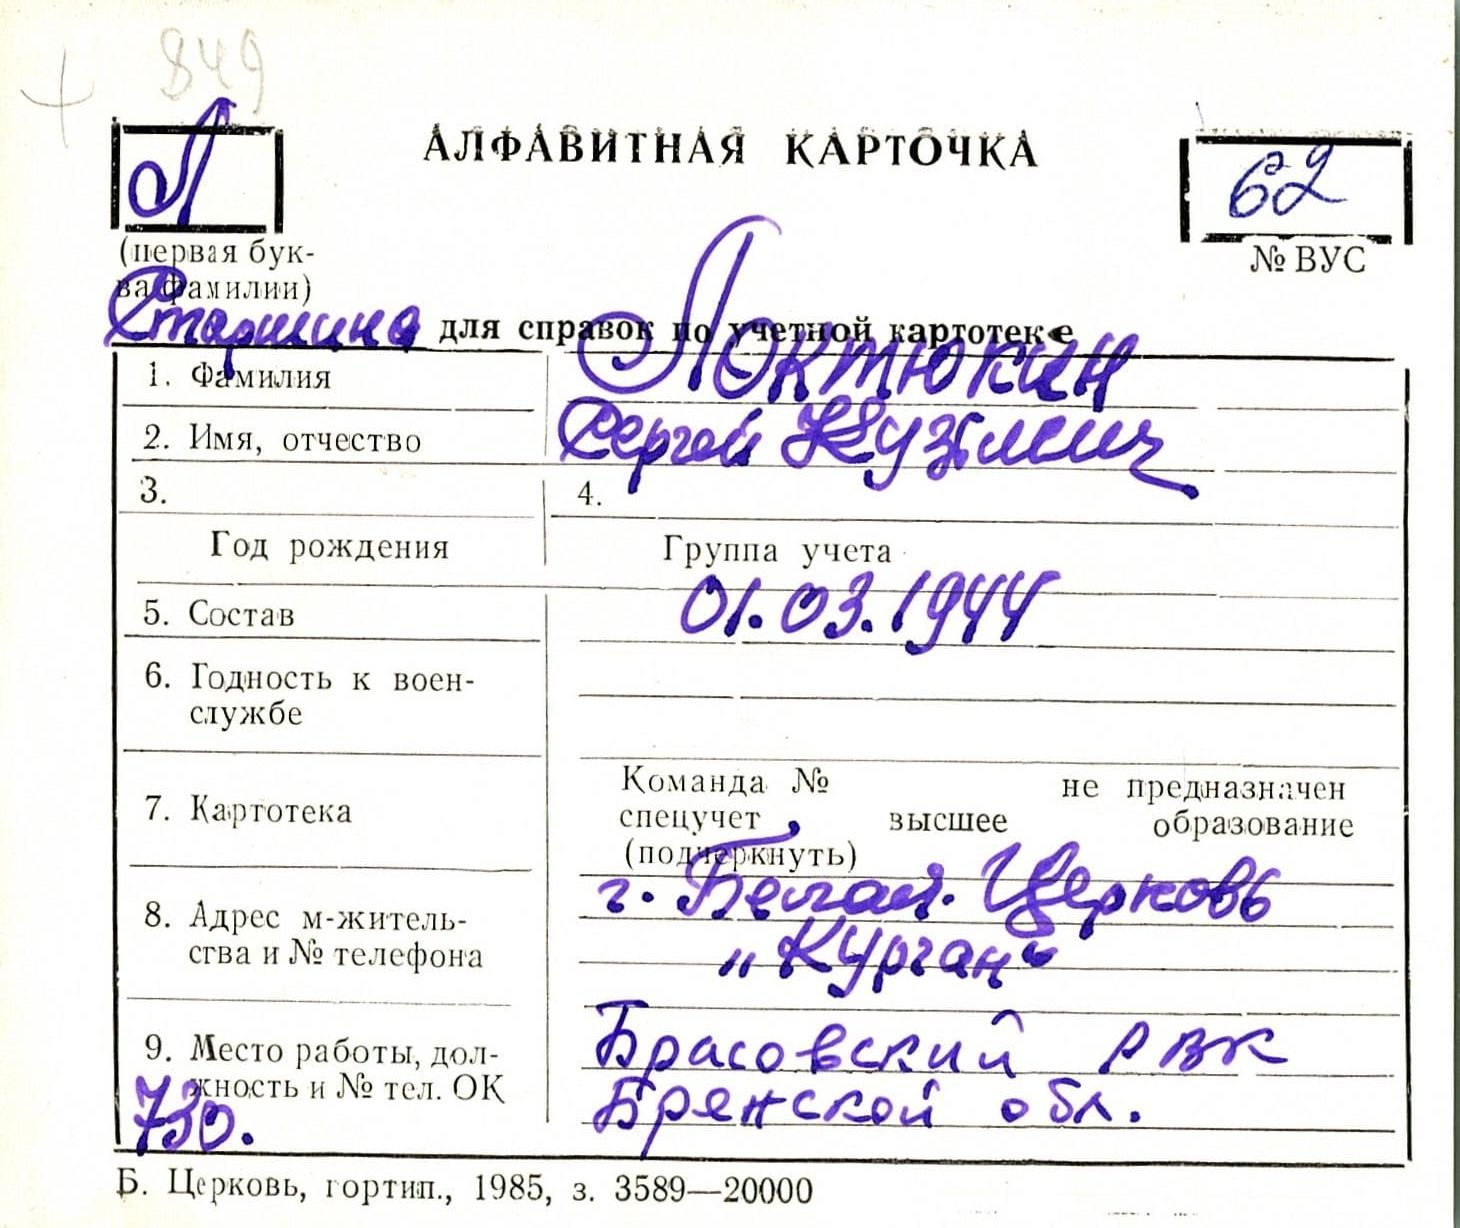 849
Л
АЛФАВИТНАЯ КАРТОЧКА
62
(первая бук-
ва фамилии)
№ ВУС
Старшина для справок по учетной картотеке
1. Фамилия Локтюкин
2. Имя, отчество Сергей Кузьмич
3. 4.
Год рождения Группа учета
01.03.1944
5. Состав
6. Годность к воен-
службе
7. Картотека
Команда № не предназначен
спецучет высшее образование
(подчеркнуть)
8. Адрес м-житель-
ства и № телефона
г. Белая Церковь
„Курган“
9. Место работы, дол-
жность и № тел. ОК
Брасовский РВК
Брянской обл.
730.
Б. Церковь, гортип., 1985, з. 3589—20000